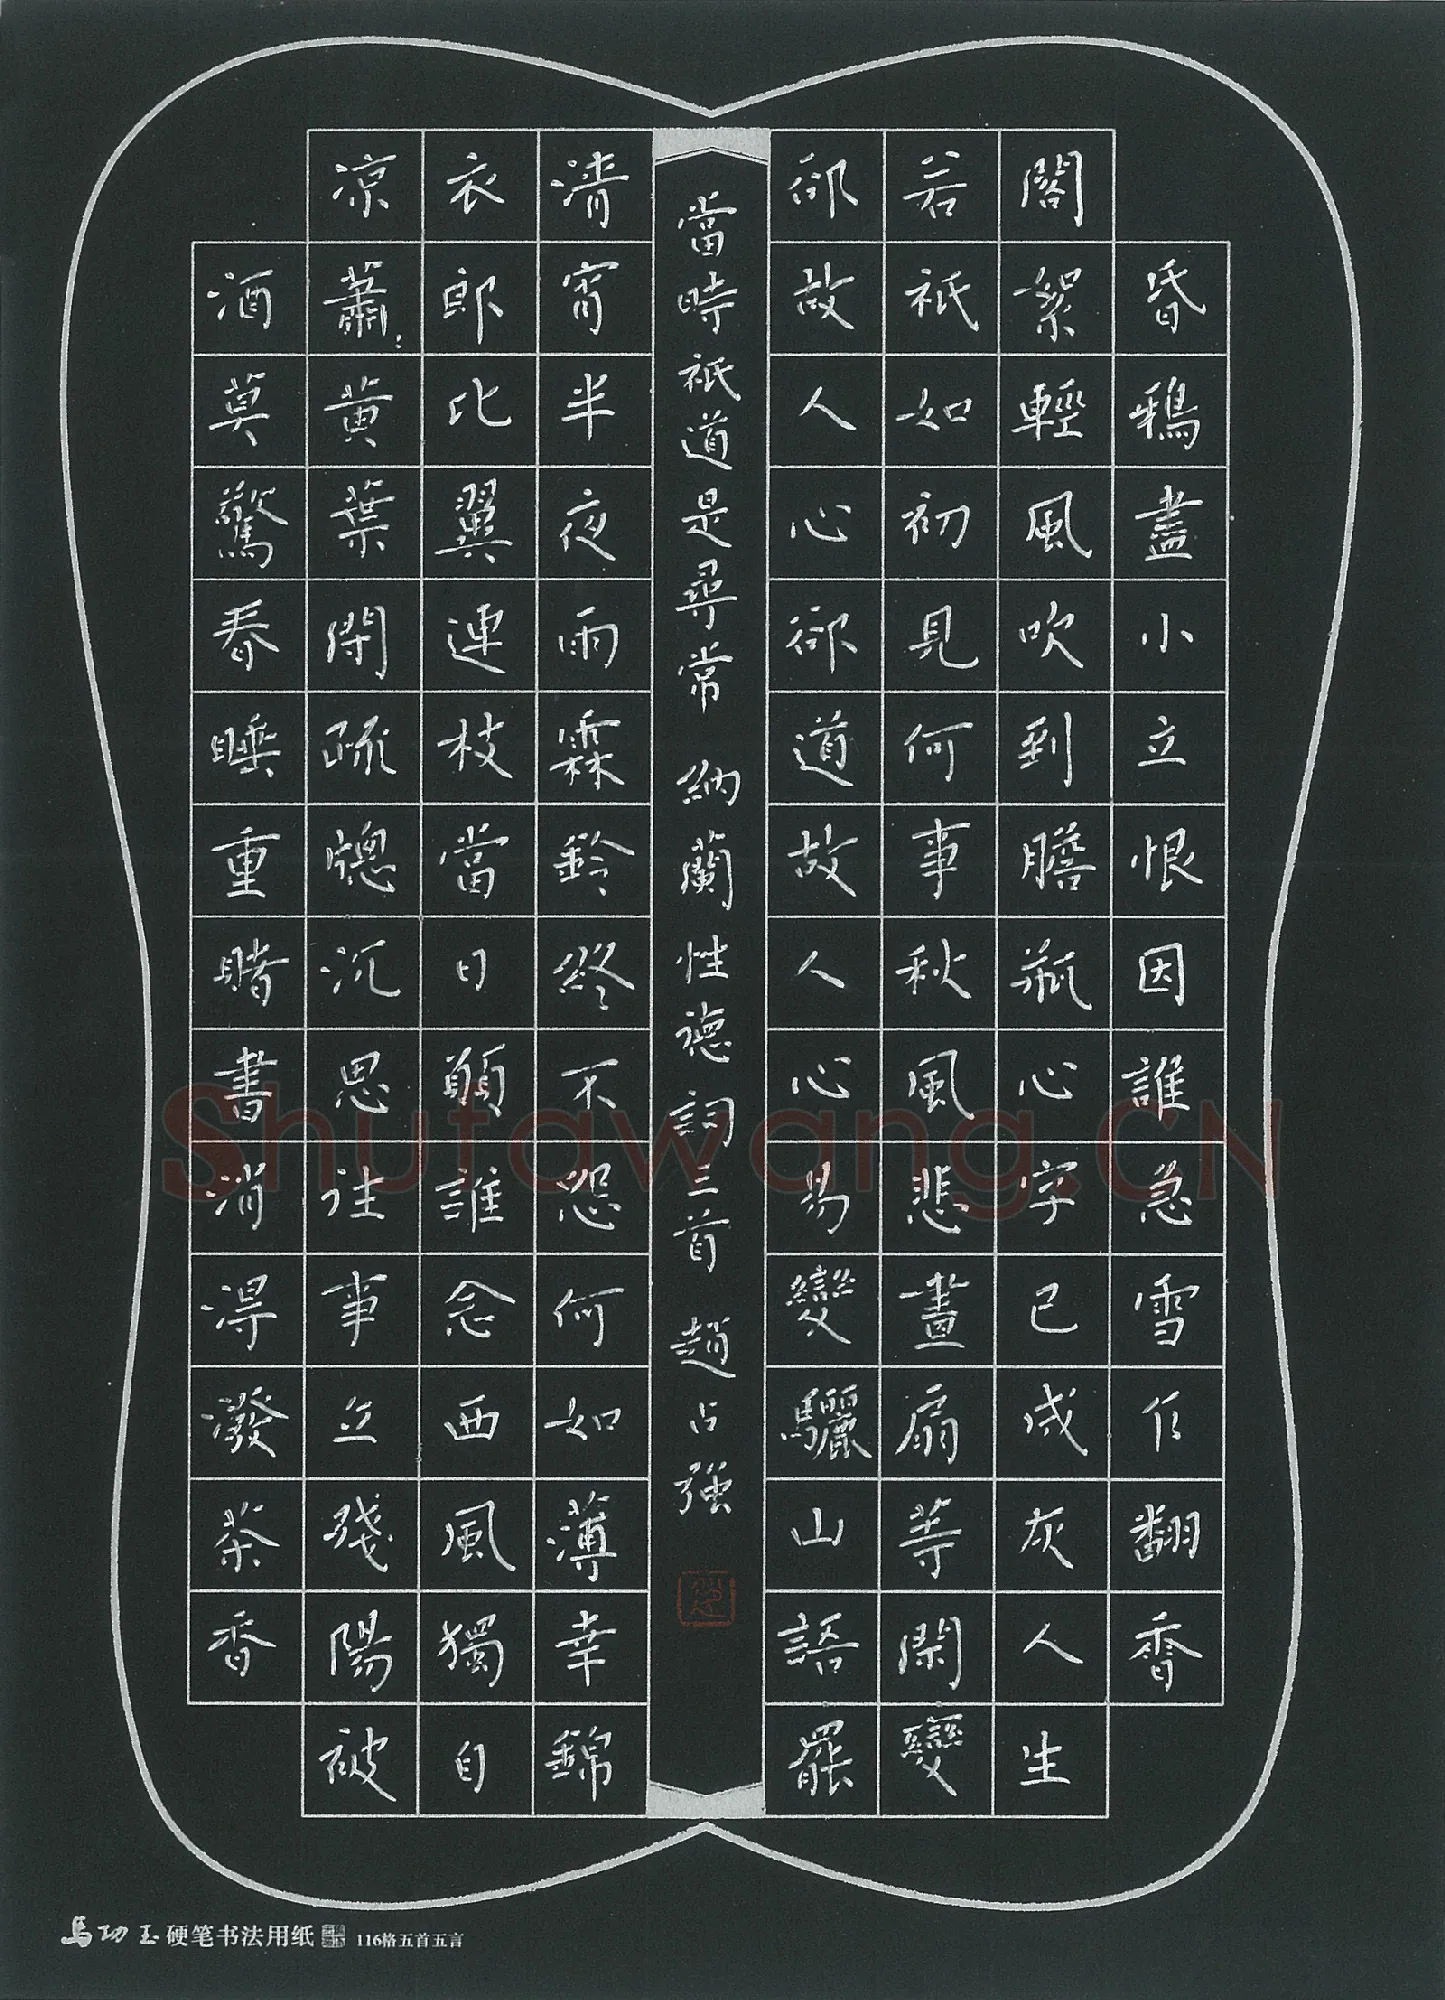 昏鴉盡小立恨因誰急雪乍翻香
閣絮輕風吹到膽瓶心字已成灰人生
若衹如初見何事秋風悲畫扇等閑變
卻故人心卻道故人心易變驪山語罷
當時衹道是尋常 納蘭性德詞三首 趙占強
清宵半夜雨霖鈴終不怨何如薄幸錦
衣郎比翼連枝當日願誰念西風獨自
凉蕭：黄葉閉疏牕沉思往事立殘陽被
酒莫驚春睡重賭書消得潑茶香
Shufawang.CN
馬功玉硬笔书法用纸 116格五首五言